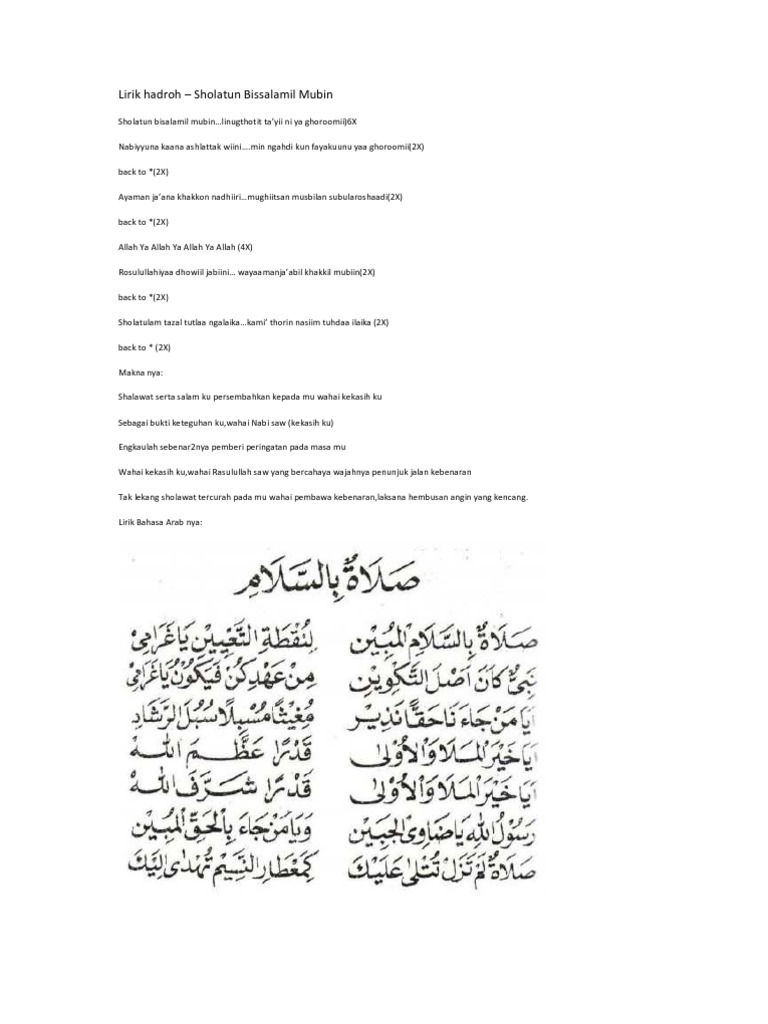 Lirik hadroh – Sholatun Bissalamil Mubin
Sholatun bisalamil mubin...linugthotit ta'yii ni ya ghoroomii)6X
Nabiyyuna kaana ashlattak wiini....min ngahdi kun fayakuunu yaa ghoroomii(2X)
back to *(2X)
Ayaman ja'ana khakkon nadhiiri...mughiitsan musbilan subularoshaadi(2X)
back to *(2X)
Allah Ya Allah Ya Allah Ya Allah (4X)
Rosulullahiyaa dhowiil jabiini... wayaamanja'abil khakkil mubiin(2X)
back to *(2X)
Sholatulam tazal tutlaa ngalaika...kami' thorin nasiim tuhdaa ilaika (2X)
back to * (2X)
Makna nya:
Shalawat serta salam ku persembahkan kepada mu wahai kekasih ku
Sebagai bukti keteguhan ku,wahai Nabi saw (kekasih ku)
Engkaulah sebenar2nya pemberi peringatan pada masa mu
Wahai kekasih ku,wahai Rasulullah saw yang bercahaya wajahnya penunjuk jalan kebenaran
Tak lekang sholawat tercurah pada mu wahai pembawa kebenaran,laksana hembusan angin yang kencang.
Lirik Bahasa Arab nya:
صَلَاةٌ بِالسَّلَامِ
صَلَاةٌ بِالسَّلَامِ الْمُبِيْنِ لِنُقْطَةِ التَّعْيِيْنِ يَاغَرَامِيْ
نَبِيٌّ كَانَ اَصْلَ التَّكْوِيْنِ مِنْ عَهْدِ كُنْ فَيَكُوْنُ يَاغَرَامِيْ
اَيَا مَنْ جَاءَ نَاحَقًّا نَذِيْرِ مُغِيْثًا مُسْبِلًا سُبُلَ الرَّشَادِ
اَيَا خَيْرَ الْمَلَا وَالْأُوْلَى قَدْرًا عَظَّمَ اللهْ
اَيَا خَيْرَ الْمَلَا وَالْأُوْلَى قَدْرًا شَرَّفَ اللهْ
رَسُوْلُ اللهِ يَاضَاوِى الْجَبِيْنِ وَيَا مَنْ جَاءَ بِالْحَقِّ الْمُبِيْنِ
صَلَاةٌ لَمْ تَزَلْ تُتْلَى عَلَيْكَ كَمِعْطَارِ النَّسِيْمِ تُهْدَى اِلَيْكَ